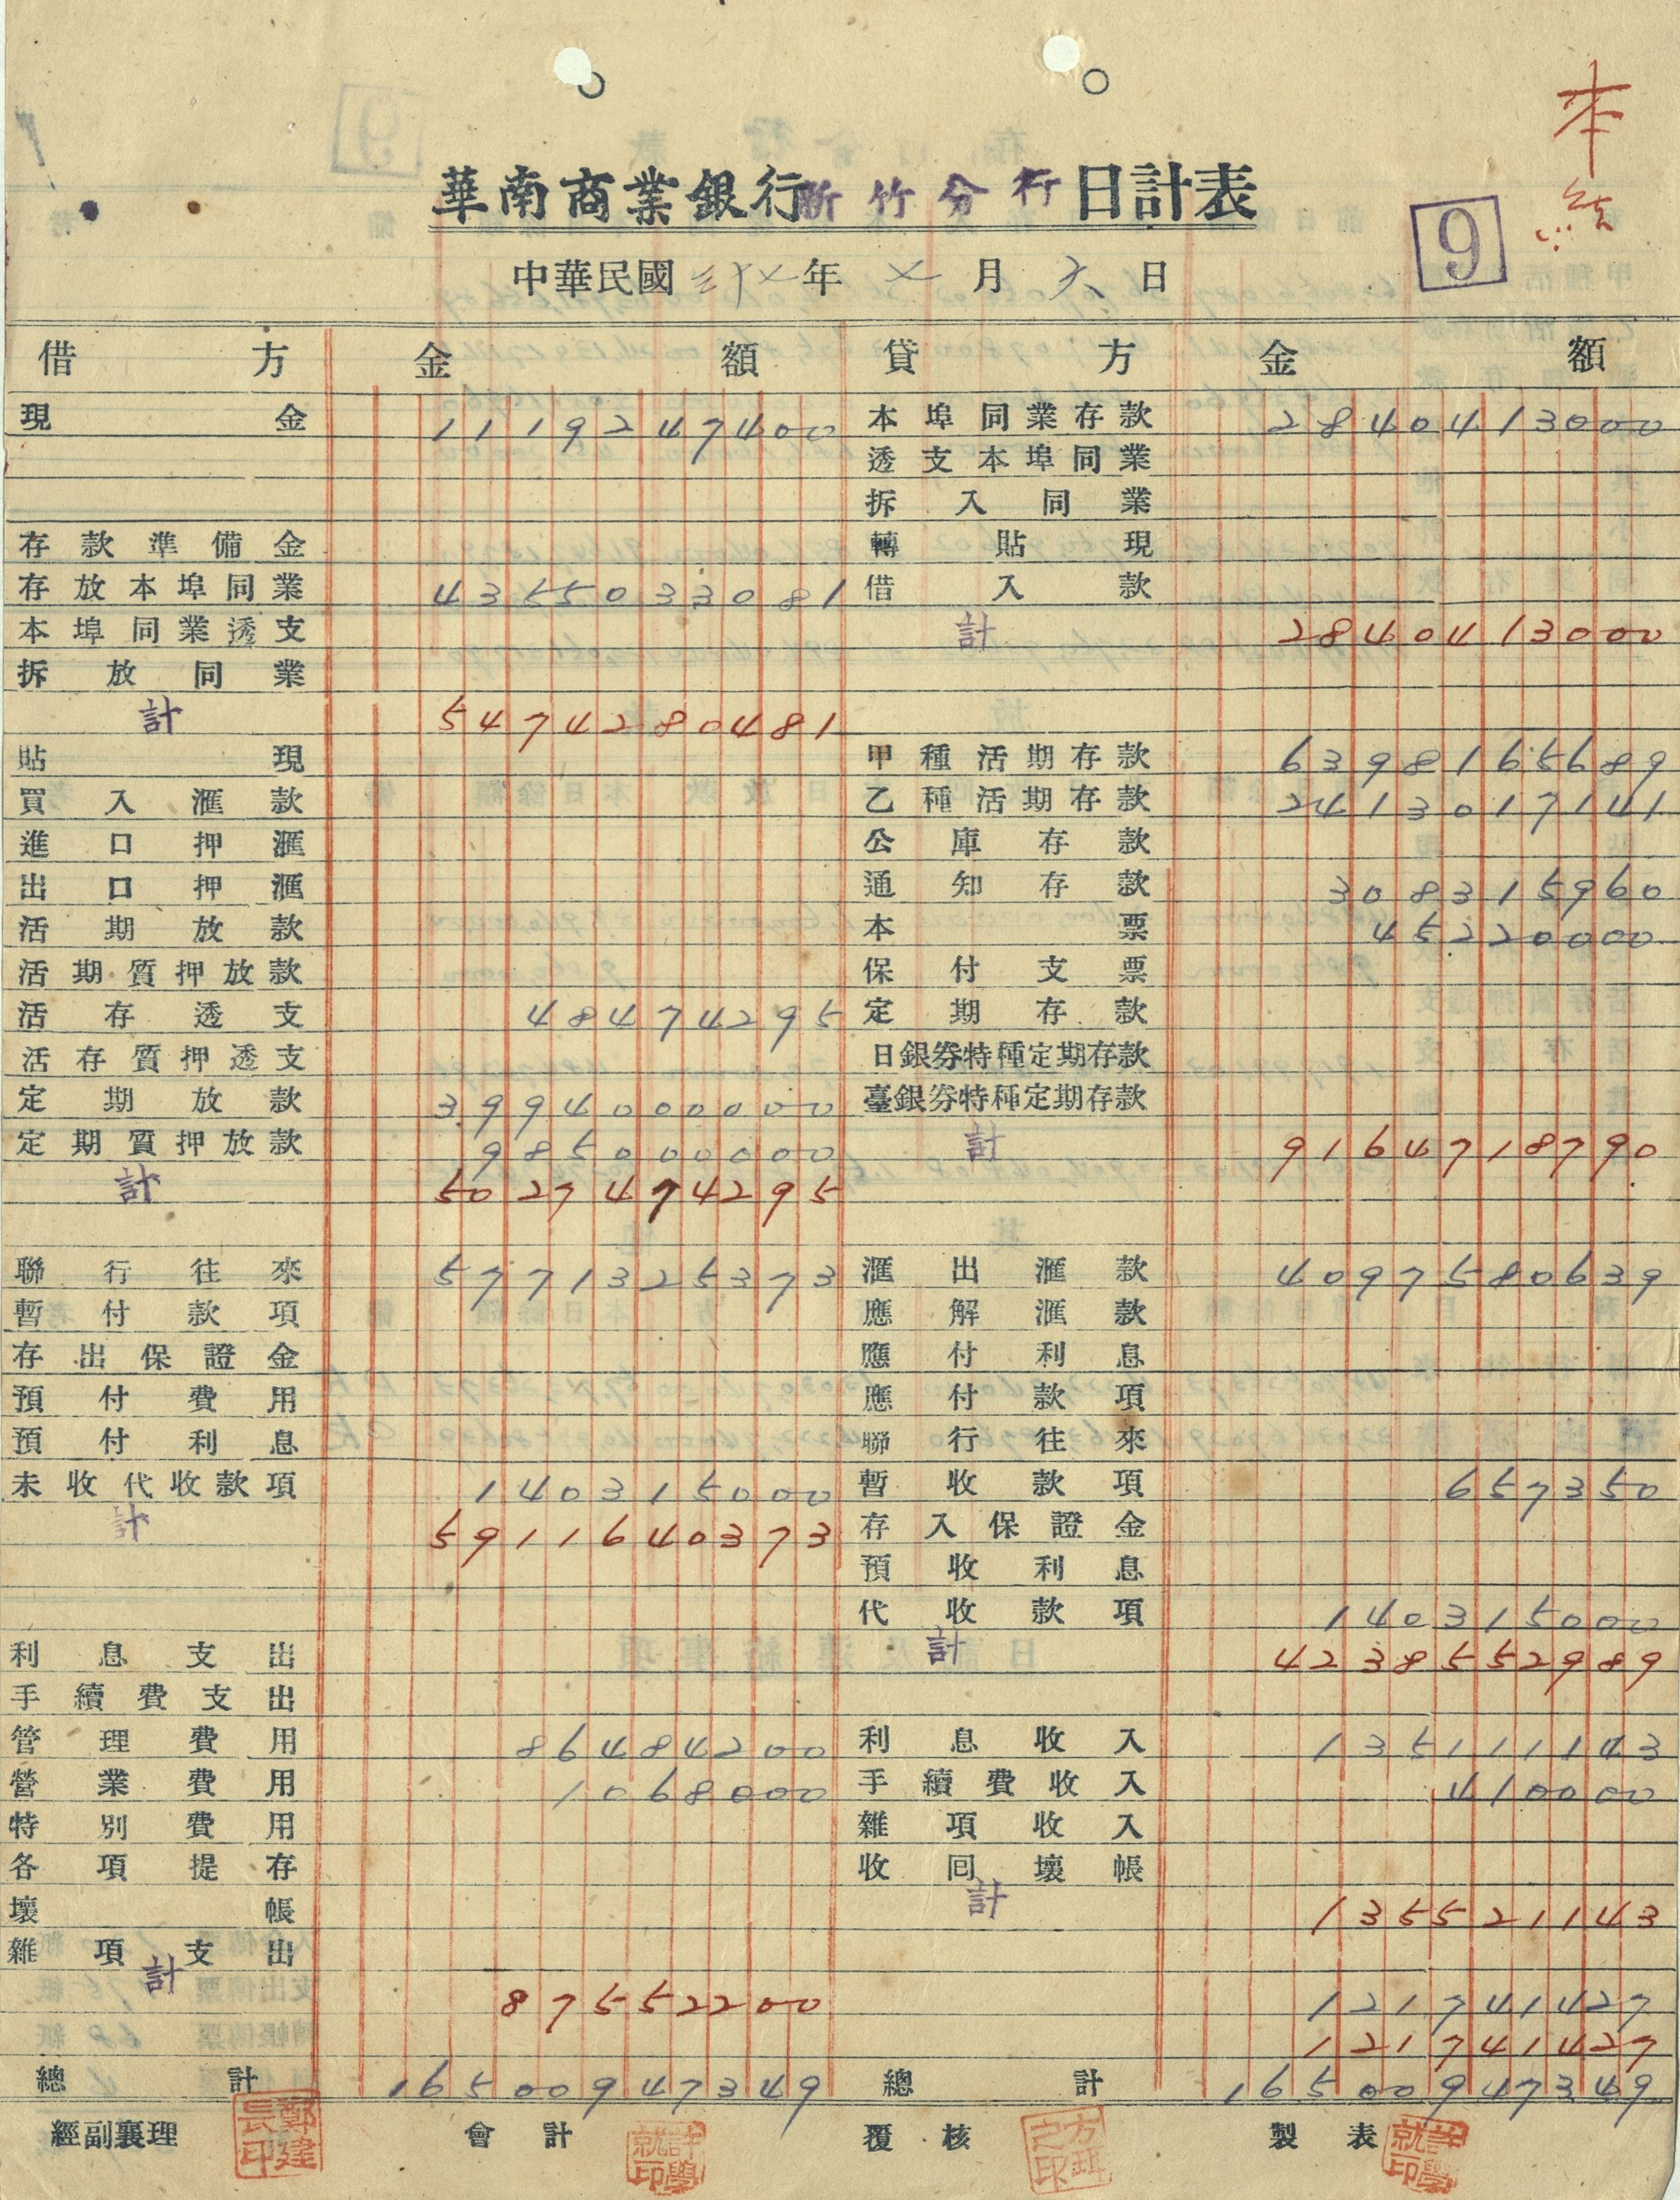 本
結
華南商業銀行新竹分行日計表
9
中華民國三十七年七月六日
借方 金額 貸方 金額
現金 1119247400 本埠同業存款 2840413000
透支本埠同業
拆入同業
存款準備金 轉貼現
存放本埠同業 4355033081 借入款
本埠同業透支 計 2840413000
拆放同業
計 5474280481
貼現 甲種活期存款 6398165689
買入滙款 乙種活期存款 2413017141
進口押滙 公庫存款
出口押滙 通知存款 308315960
活期放款 本票 45220000
活期質押放款 保付支票
活存透支 48474295 定期存款
活存質押透支 日銀券特種定期存款
定期放款 3994000000 臺銀券特種定期存款
定期質押放款 985000000 計 9164718790
計 5027474295
聯行往來 5771325373 滙出滙款 4097580639
暫付款項 應解滙款
存出保證金 應付利息
預付費用 應付款項
預付利息 聯行往來
未收代收款項 140315000 暫收款項 657350
計 5911640373 存入保證金
預收利息
代收款項 140315000
利息支出 計 4238552989
手續費支出
管理費用 86484200 利息收入 135111143
營業費用 1068000 手續費收入 410000
特別費用 雜項收入
各項提存 收囘壞帳
壞帳 計 135521143
雜項支出
計 87552200 121741427
121741427
總計 16500947349 總計 16500947349
經副襄理 鄭建長印 會計 許學就印 覆核 製表 許學就印